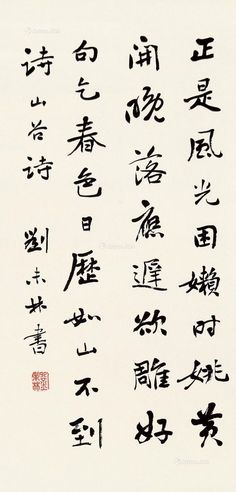 正是風光困嬾时姚黄
開晚落應遲欲雕好
句乞春色日歷如山不到
诗山谷诗 劉未林書